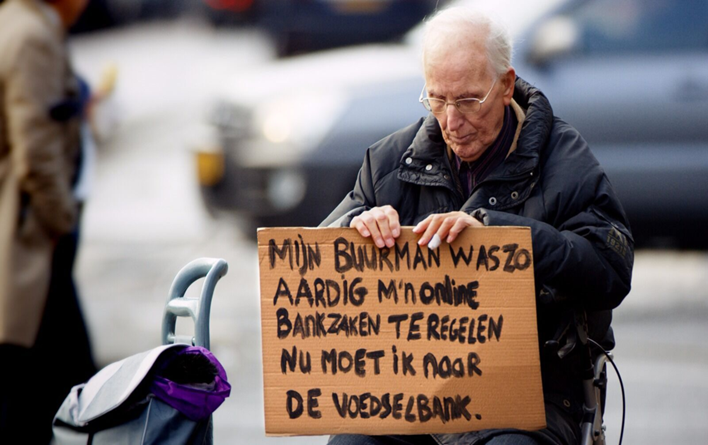 MIJN BUURMAN WAS ZO
AARDIG M'n online
BANKZAKEN TE REGELEN
NU MOET IK NAAR
DE VOEDSELBANK.